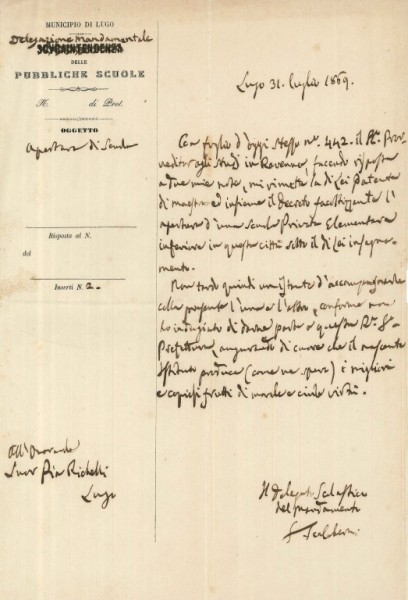 MUNICIPIO DI LUGO
Delegazione Mandamentale
SOVRAINTENDENZA
DELLE
PUBBLICHE SCUOLE
N. di Prot.
OGGETTO
Apertura di Scuola
Risposta al N.
del
Inserti N. 2.
All'Onorande
Suor Pia Richelli
Lugo
Lugo 31. luglio 1869.
Con foglio d'oggi stesso nº. 442. il Rº. Prov-
veditor agli Studi in Ravenna, facendo risposta
a due mie note, mi rimette la di Lei Patente
di maestra ed insieme il Decreto facoltizzante l'
apertura d'una scuola Privata Elementare
inferiore in questa città sotto il di Lei insegna-
mento.
Non tardo quindi un istante d'accompagnarle
colla presente l'una e l'altro, conforme non
ho indugiato di darne parte a questa Rª. Sº.
Prefettura, augurando di cuore che il nascente
Istituto produca (come ne spero) i migliori
e copiosi frutti di morale e civile virtù.
Il Delegato Scolastico
del Mandamento